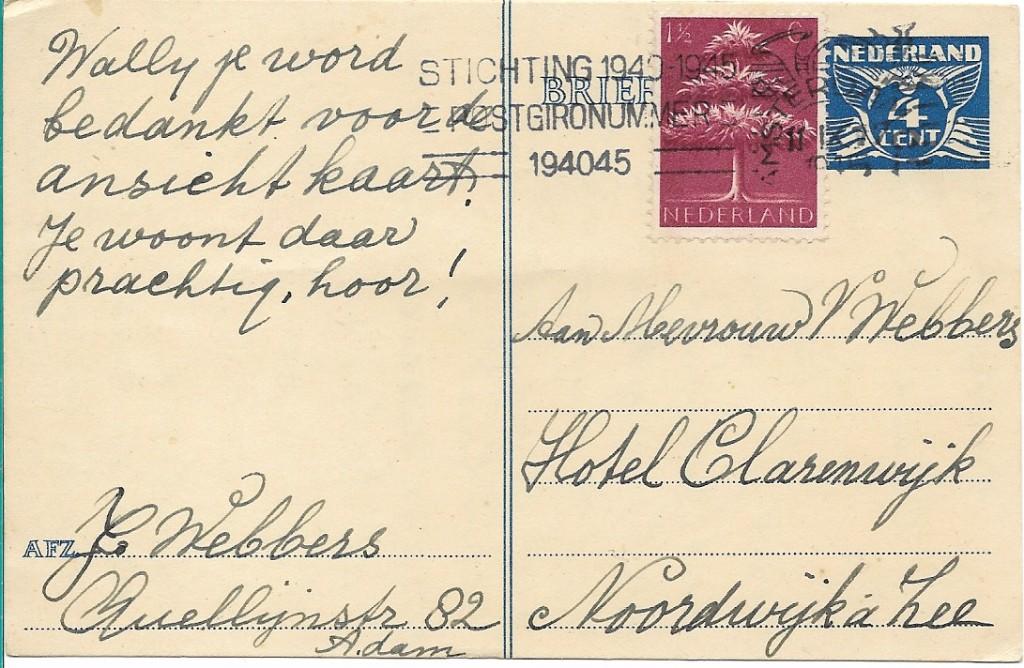 Wally je word
bedankt voor de
ansicht kaart.
Je woont daar
prachtig, hoor!
AFZ. Webbers
Quellijnstr 82
A.dam
STICHTING 1940-1945
POSTGIRONUMMER
194045
BRIEF
1½ C
NEDERLAND
NEDERLAND
4
CENT
Aan Mevrouw V Webbers
Hotel Clarenwijk
Noordwijk a Zee